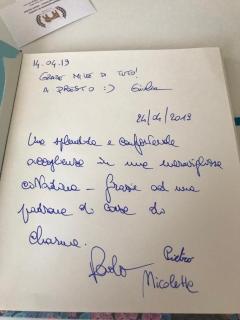 14.04.19
GRAZIE MILLE DI TUTO!
A PRESTO :) Giulia
24/04/2019
Una splendida e confortevole
accoglienza in una meravigliosa
cittadina - Grazie ad una
padrona di casa do
charme.
Paolo Pietro
Nicoletta